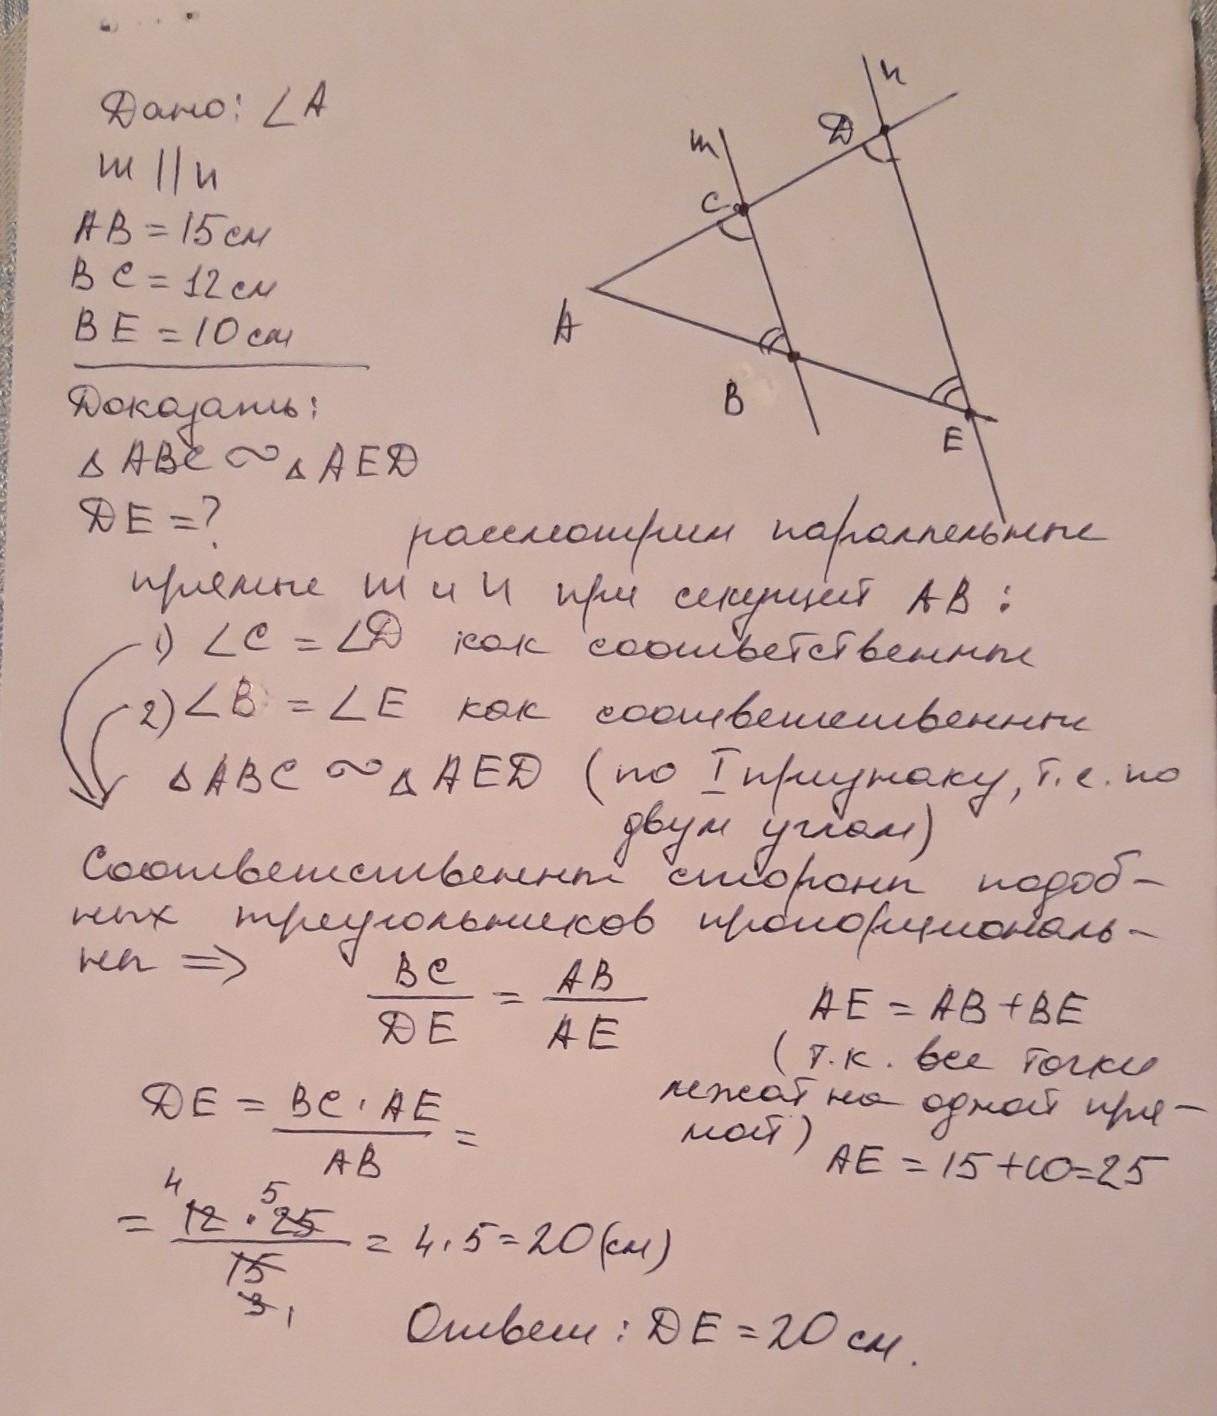 Дано: ∠A
m || n
AB = 15 см
BC = 12 см
BE = 10 см
Доказать:
△ ABC ∾ △ AED
DE = ?
m
n
C
D
A
B
E
рассмотрим параллельные
прямые m и n при секущей AB :
1) ∠C = ∠D как соответственные
2) ∠B = ∠E как соответственные
△ ABC ∾ △ AED (по I признаку, т.е. по
двум углам)
Соответственные стороны подоб-
ных треугольников пропорциональ-
ны =>
BC / DE = AB / AE
AE = AB + BE
(т.к. все точки
лежат на одной пря-
мой)
AE = 15 + 10 = 25
DE = BC · AE / AB =
4 5
= 12 · 25 / 15 = 4 · 5 = 20 (см)
3 1
Ответ : DE = 20 см.